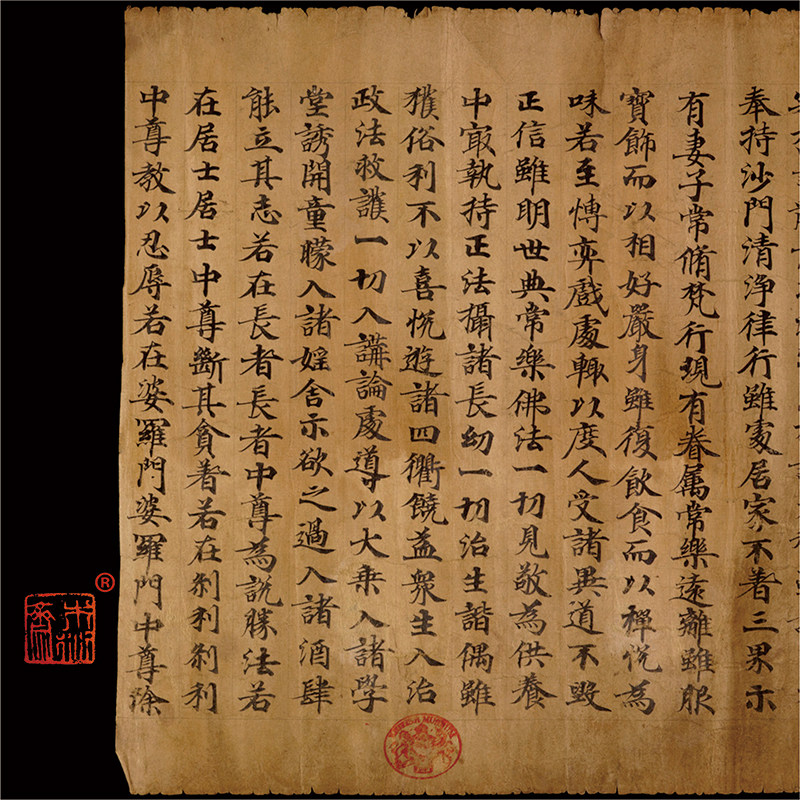 奉持沙門清淨律行雖處居家不著三界示
有妻子常脩梵行現有眷属常樂遠離雖服
寶飾而以相好嚴身雖復飲食而以禪悅為
味若至博弈戲處輒以度人受諸異道不毀
正信雖明世典常樂佛法一切見敬為供養
中㝡執持正法攝諸長幼一切治生諧偶雖
獲俗利不以喜悅遊諸四衢饒益衆生入治
政法救護一切入講論處導以大乗入諸學
堂誘開童矇入諸婬舍示欲之過入諸酒肆
能立其志若在長者長者中尊為說勝法若
在居士居士中尊斷其貪著若在刹利刹利
中尊教以忍辱若在婆羅門婆羅門中尊除
®